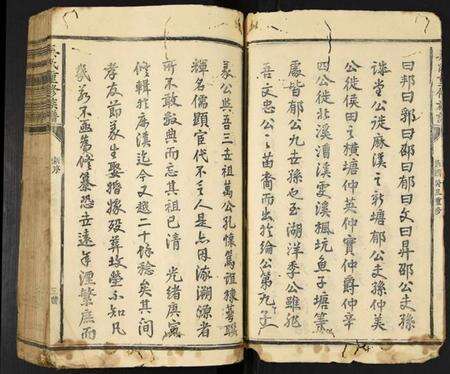 曰邦曰郭曰邵曰郁曰文曰昇邵公支孫
公徙麻溪之新塘郁公支孫仲美
公徙侯田之橫塘仲英仲寶仲爵仲辛
四公徙北溪漕溪雲溪楓坑魚子塘等
處皆郁公九世孫也至湖洋季公雖非
吾文忠公之苗裔而出於綸公第九子
袁公與吾三世祖萬公孔懷篤誼棣萼聯
輝名儒顯宦代不乏人是亦因派溯源者
所不敢數典而忘其祖已清 光緒庚寅
修輯於庵溪迄今又越二十餘稔矣其間
孝友節義生娶婚嫁歿葬坟塋不知凡
幾若不亟為修纂恐世遠年湮繁庶而
氏重修族譜
新序